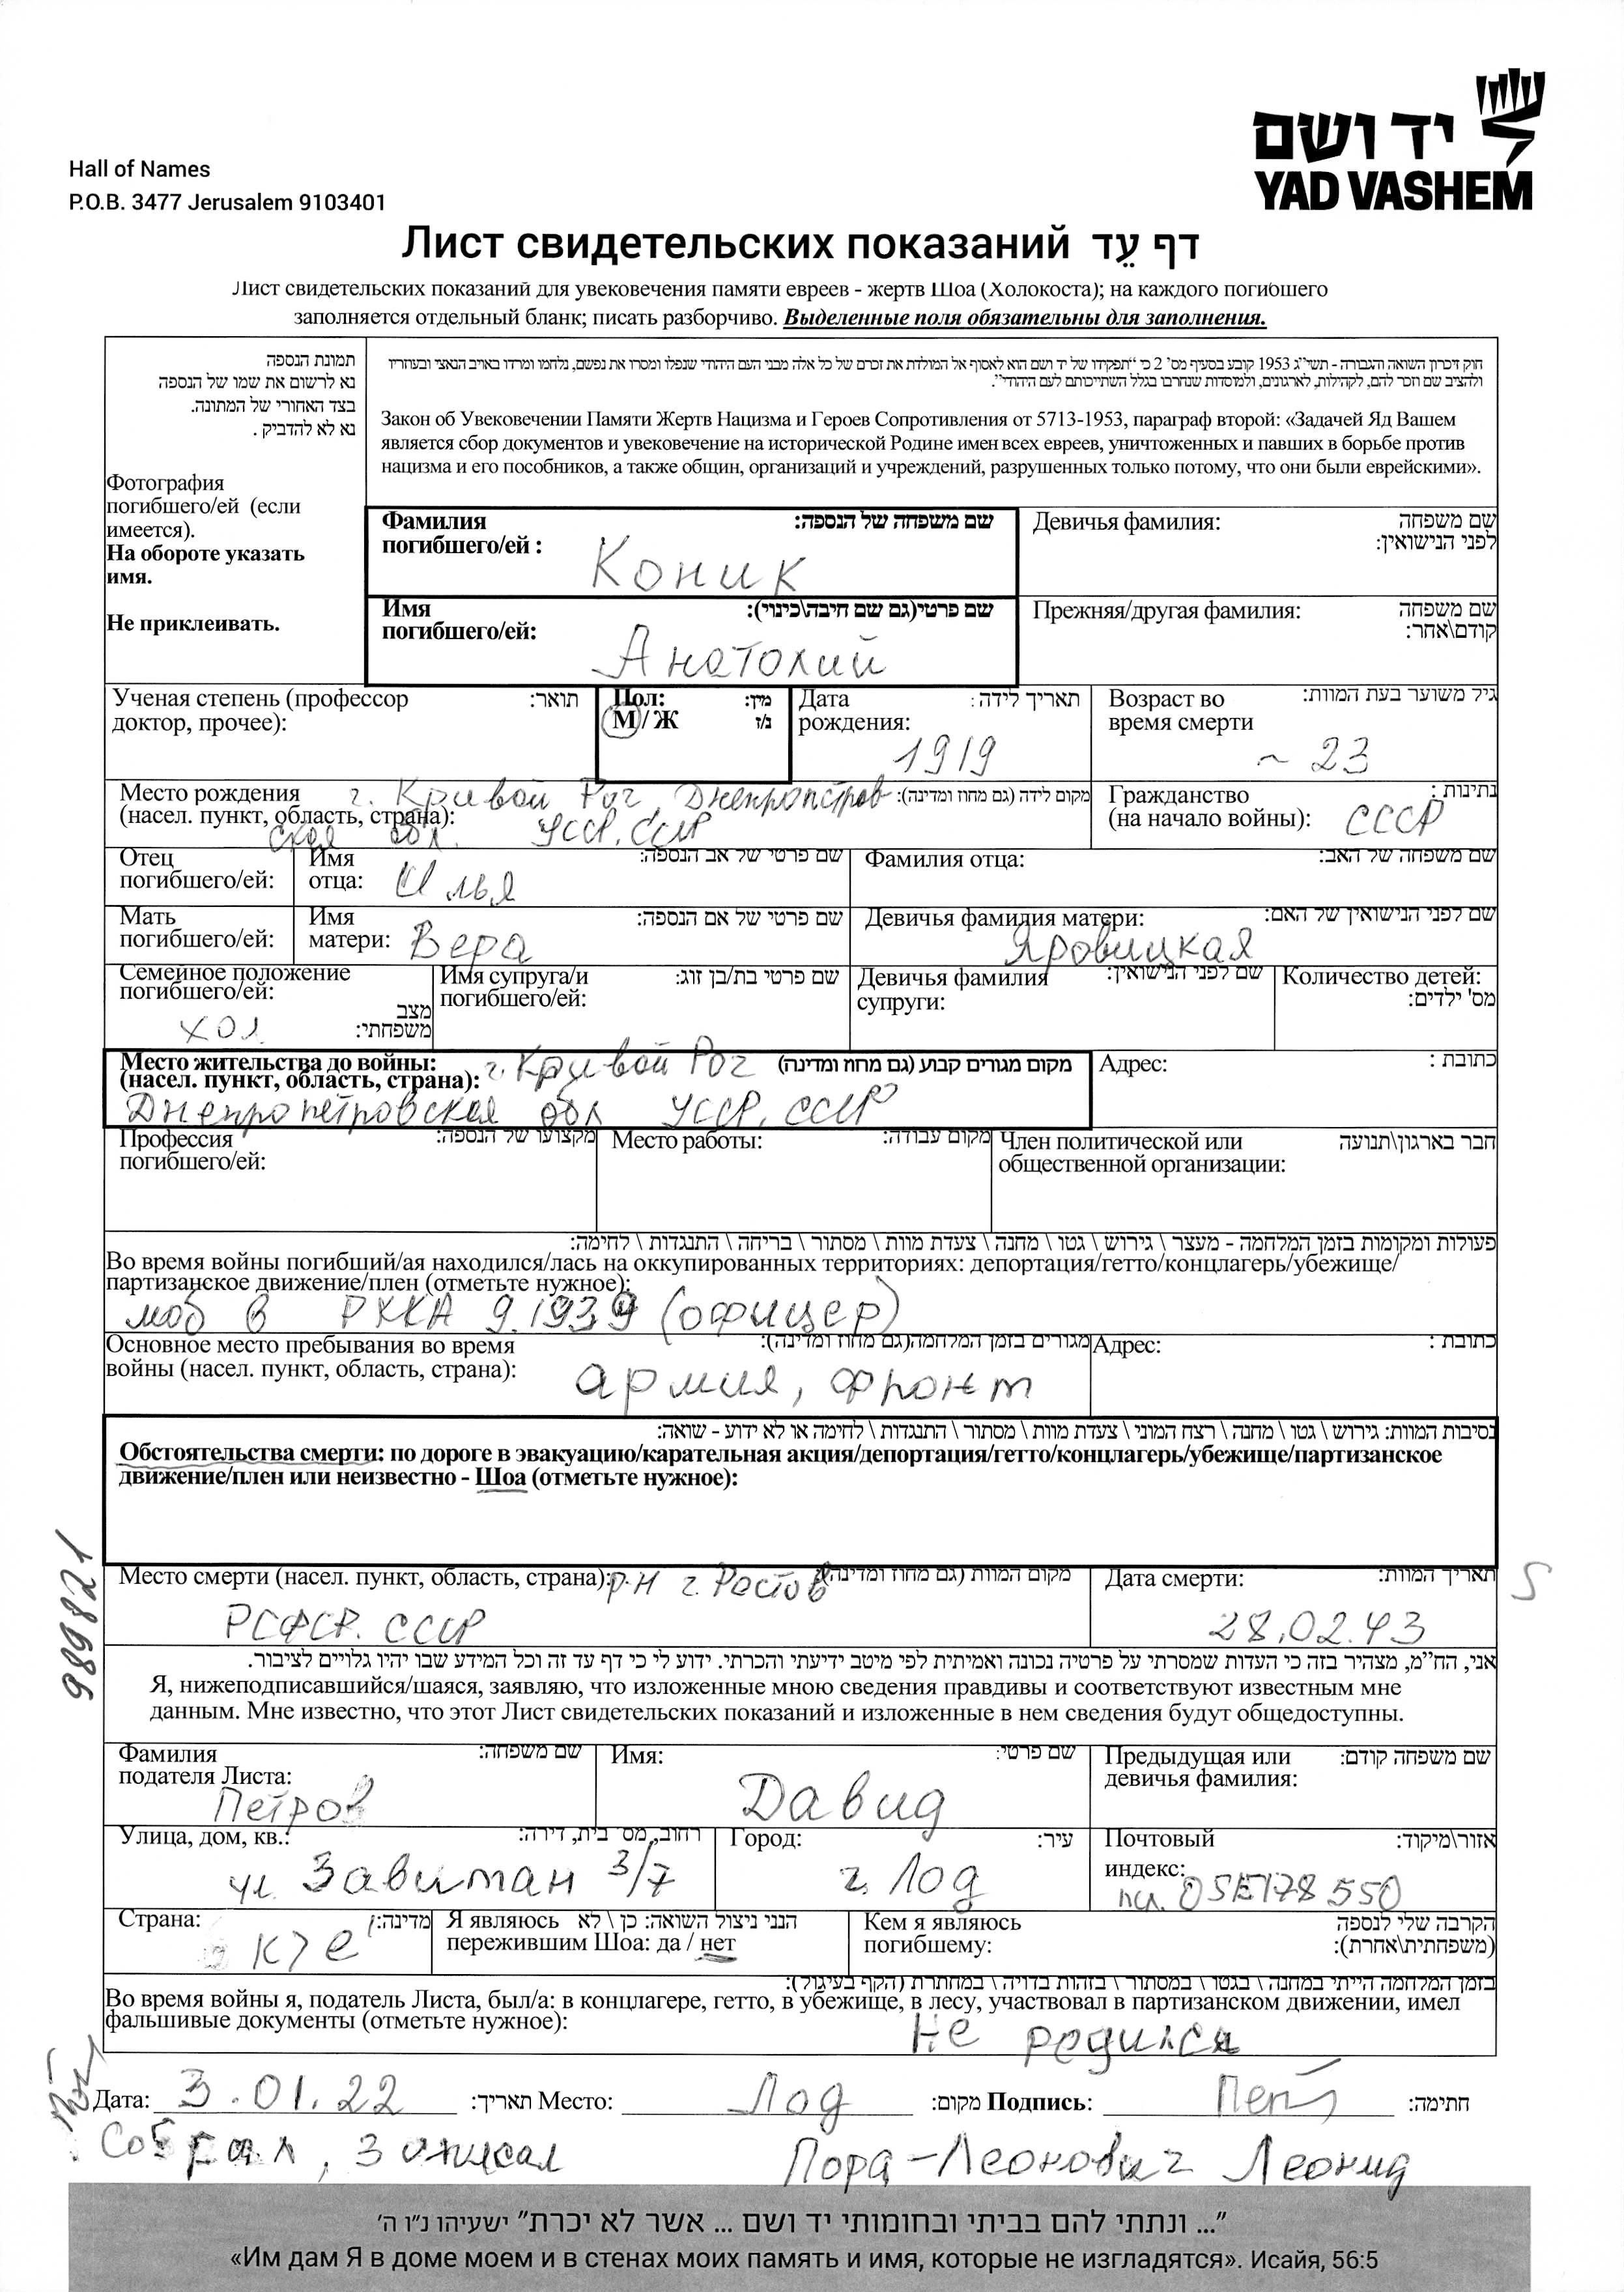 יד ושם
YAD VASHEM
Hall of Names
P.O.B. 3477 Jerusalem 9103401
Лист свидетельских показаний דף עֵד
Лист свидетельских показаний для увековечения памяти евреев - жертв Шоа (Холокоста); на каждого погибшего
заполняется отдельный бланк; писать разборчиво. Выделенные поля обязательны для заполнения.
תמונת הנספה
נא לרשום את שמו של הנספה
בצד האחורי של המתונה.
נא לא להדביק .
Фотография
погибшего/ей (если
имеется).
На обороте указать
имя.
Не приклеивать.
חוק זיכרון השואה והגבורה - תשי"ג 1953 קובע בסעיף מס' 2 כי "תפקידו של יד ושם הוא לאסוף אל המולדת את זכרם של כל אלה מבני העם היהודי שנפלו ומסרו את נפשם, נלחמו ומרדו באויב הנאצי ובעוזריו
ולהציב שם וזכר להם, לקהילות, לארגונים, ולמוסדות שנחרבו בגלל השתייכותם לעם היהודי".
Закон об Увековечении Памяти Жертв Нацизма и Героев Сопротивления от 5713-1953, параграф второй: «Задачей Яд Вашем
является сбор документов и увековечение на исторической Родине имен всех евреев, уничтоженных и павших в борьбе против
нацизма и его пособников, а также общин, организаций и учреждений, разрушенных только потому, что они были еврейскими».
Фамилия שם משפחה של הנספה:
погибшего/ей :
Коник
Девичья фамилия: שם משפחה
לפני הנישואין:
Имя שם פרטי(גם שם חיבה\כינוי):
погибшего/ей:
Анатолий
Прежняя/другая фамилия: שם משפחה
קודם\אחר:
Ученая степень (профессор תואר:
доктор, прочее):
Пол: מין:
М / Ж ז/נ
Дата תאריך לידה :
рождения:
1919
Возраст во גיל משוער בעת המוות:
время смерти
~ 23
Место рождения г. Кривой Рог, Днепропетров מקום לידה (גם מחוז ומדינה):
(насел. пункт, область, страна):
ская обл. УССР. СССР
Гражданство נתינות :
(на начало войны): СССР
Отец
погибшего/ей:
Имя שם פרטי של אב הנספה:
отца: Илья
Фамилия отца: שם משפחה של האב:
Мать
погибшего/ей:
Имя שם פרטי של אם הנספה:
матери: Вера
Девичья фамилия матери: שם לפני הנישואין של האם:
Яровицкая
Семейное положение
погибшего/ей: מצב
хол. משפחתי:
Имя супруга/и שם פרטי בת/בן זוג:
погибшего/ей:
Девичья фамилия שם לפני הנישואין:
супруги:
Количество детей:
מס' ילדים:
Место жительства до войны: г. Кривой Рог מקום מגורים קבוע (גם מחוז ומדינה)
(насел. пункт, область, страна):
Днепропетровская обл УССР, СССР
Адрес: כתובת :
Профессия מקצועו של הנספה:
погибшего/ей:
Место работы: מקום עבודה:
Член политической или חבר בארגון\תנועה
общественной организации:
פעולות ומקומות בזמן המלחמה - מעצר \ גירוש \ גטו \ מחנה \ צעדת מוות \ מסתור \ בריחה \ התנגדות \ לחימה:
Во время войны погибший/ая находился/лась на оккупированных территориях: депортация/гетто/концлагерь/убежище/
партизанское движение/плен (отметьте нужное):
моб в РККА 9.1939 (офицер)
Основное место пребывания во время מגורים בזמן המלחמה(גם מחוז ומדינה):
войны (насел. пункт, область, страна):
армия, фронт
Адрес: כתובת :
נסיבות המוות: גירוש \ גטו \ מחנה \ רצח המוני \ צעדת מוות \ מסתור \ התנגדות \ לחימה או לא ידוע - שואה:
Обстоятельства смерти: по дороге в эвакуацию/карательная акция/депортация/гетто/концлагерь/убежище/партизанское
движение/плен или неизвестно - Шоа (отметьте нужное):
989821
Место смерти (насел. пункт, область, страна): р-н г. Ростов מקום המוות (גם מחוז ומדינה):
РСФСР. СССР
Дата смерти: תאריך המוות:
28.02.43
S
אני, הח"מ, מצהיר בזה כי העדות שמסרתי על פרטיה נכונה ואמיתית לפי מיטב ידיעתי והכרתי. ידוע לי כי דף עד זה וכל המידע שבו יהיו גלויים לציבור.
Я, нижеподписавшийся/шаяся, заявляю, что изложенные мною сведения правдивы и соответствуют известным мне
данным. Мне известно, что этот Лист свидетельских показаний и изложенные в нем сведения будут общедоступны.
Фамилия שם משפחה:
подателя Листа:
Петров
Имя: שם פרטי:
Давид
Предыдущая или שם משפחה קודם:
девичья фамилия:
Улица, дом, кв.: רחוב, מס' בית, דירה:
ул. Завитан 3/7
Город: עיר:
г. Лод
Почтовый אזור\מיקוד:
индекс:
Страна: מדינה:
Я являюсь הנני ניצול השואה: כן \ לא
пережившим Шоа: да / нет
Кем я являюсь הקרבה שלי לנספה
погибшему: (משפחתית\אחרת):
בזמן המלחמה הייתי במחנה \ בגטו \ במסתור \ בזהות בדויה \ במחתרת (הקף בעיגול):
Во время войны я, податель Листа, был/а: в концлагере, гетто, в убежище, в лесу, участвовал в партизанском движении, имел
фальшивые документы (отметьте нужное):
не родился
Дата: 3.01.22 תאריך: Место: Лод מקום: Подпись: Пет חתימה:
Собрал, записал Пора-Леонович Леонид
"... ונתתי להם בביתי ובחומותי יד ושם ... אשר לא יכרת" ישעיהו נ"ו ה'
«Им дам Я в доме моем и в стенах моих память и имя, которые не изгладятся». Исайя, 56:5